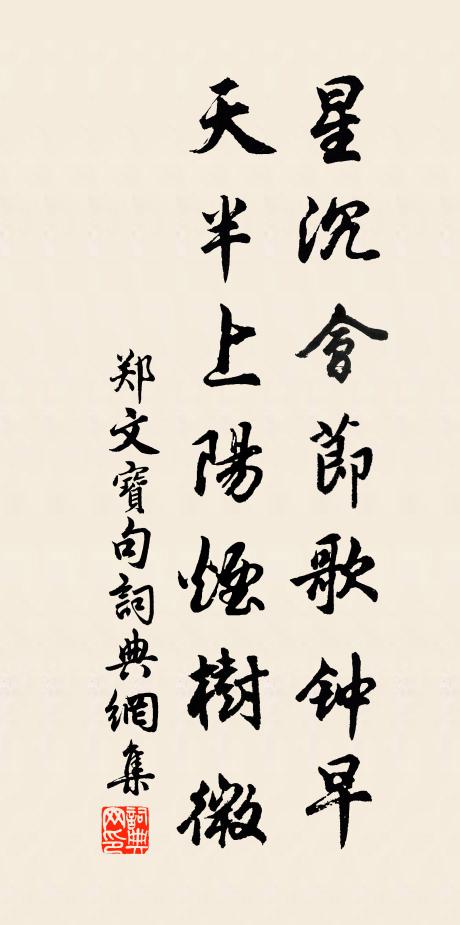 星沉會節歌钟早
天半上陽煙樹微
郑文寶句詞典網集
詞典網印